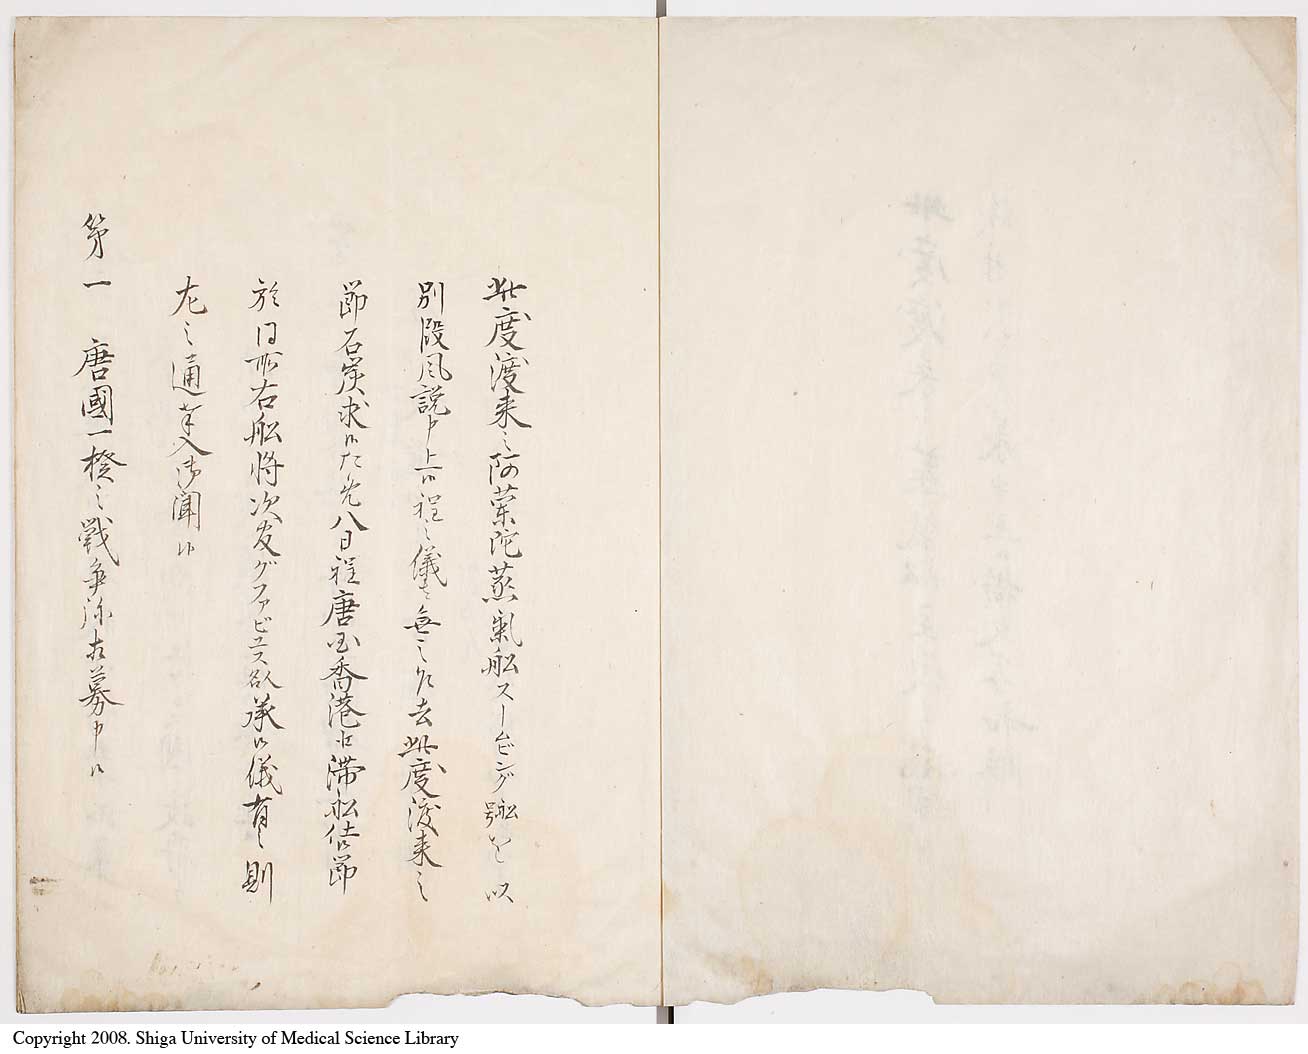 此度渡来之阿蘭陀蒸氣舩スームビング號舩を以
別段風説申上候程之儀者無之候得共此度渡来之
節石炭求候ため凡八日程唐国香港江滞舩仕候節
於同所右舩将次友グファビユス欲承候儀有之則
左之通奉入御聞候
第一 唐國一揆之戦争弥相募申候
Copyright 2008. Shiga University of Medical Science Library